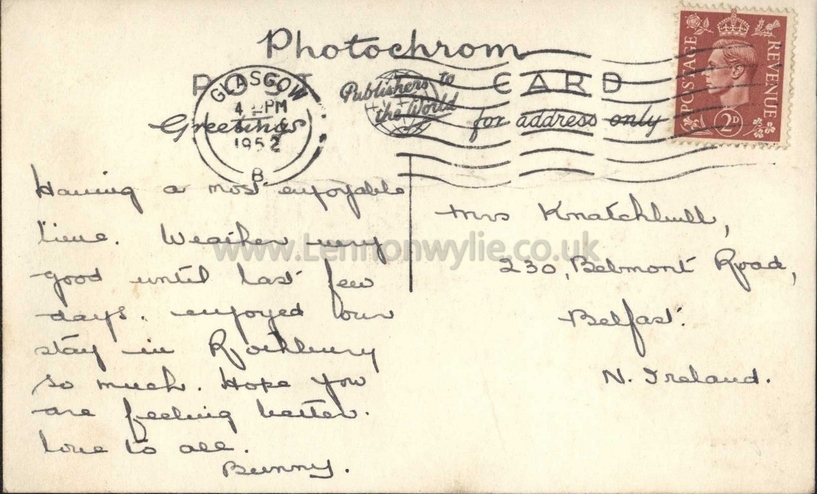 Photochrom
POST CARD
Publishers to
the World
Greetings for address only
GLASGOW
4 PM
1952
B
POSTAGE REVENUE
2D
Having a most enjoyable
time. Weather very
good until last few
days. enjoyed our
stay in Rothbury
so much. Hope you
are feeling better.
love to all.
Bunny.
Mrs Knatchbull,
230, Belmont Road,
Belfast.
N. Ireland.
www.Lennonwylie.co.uk